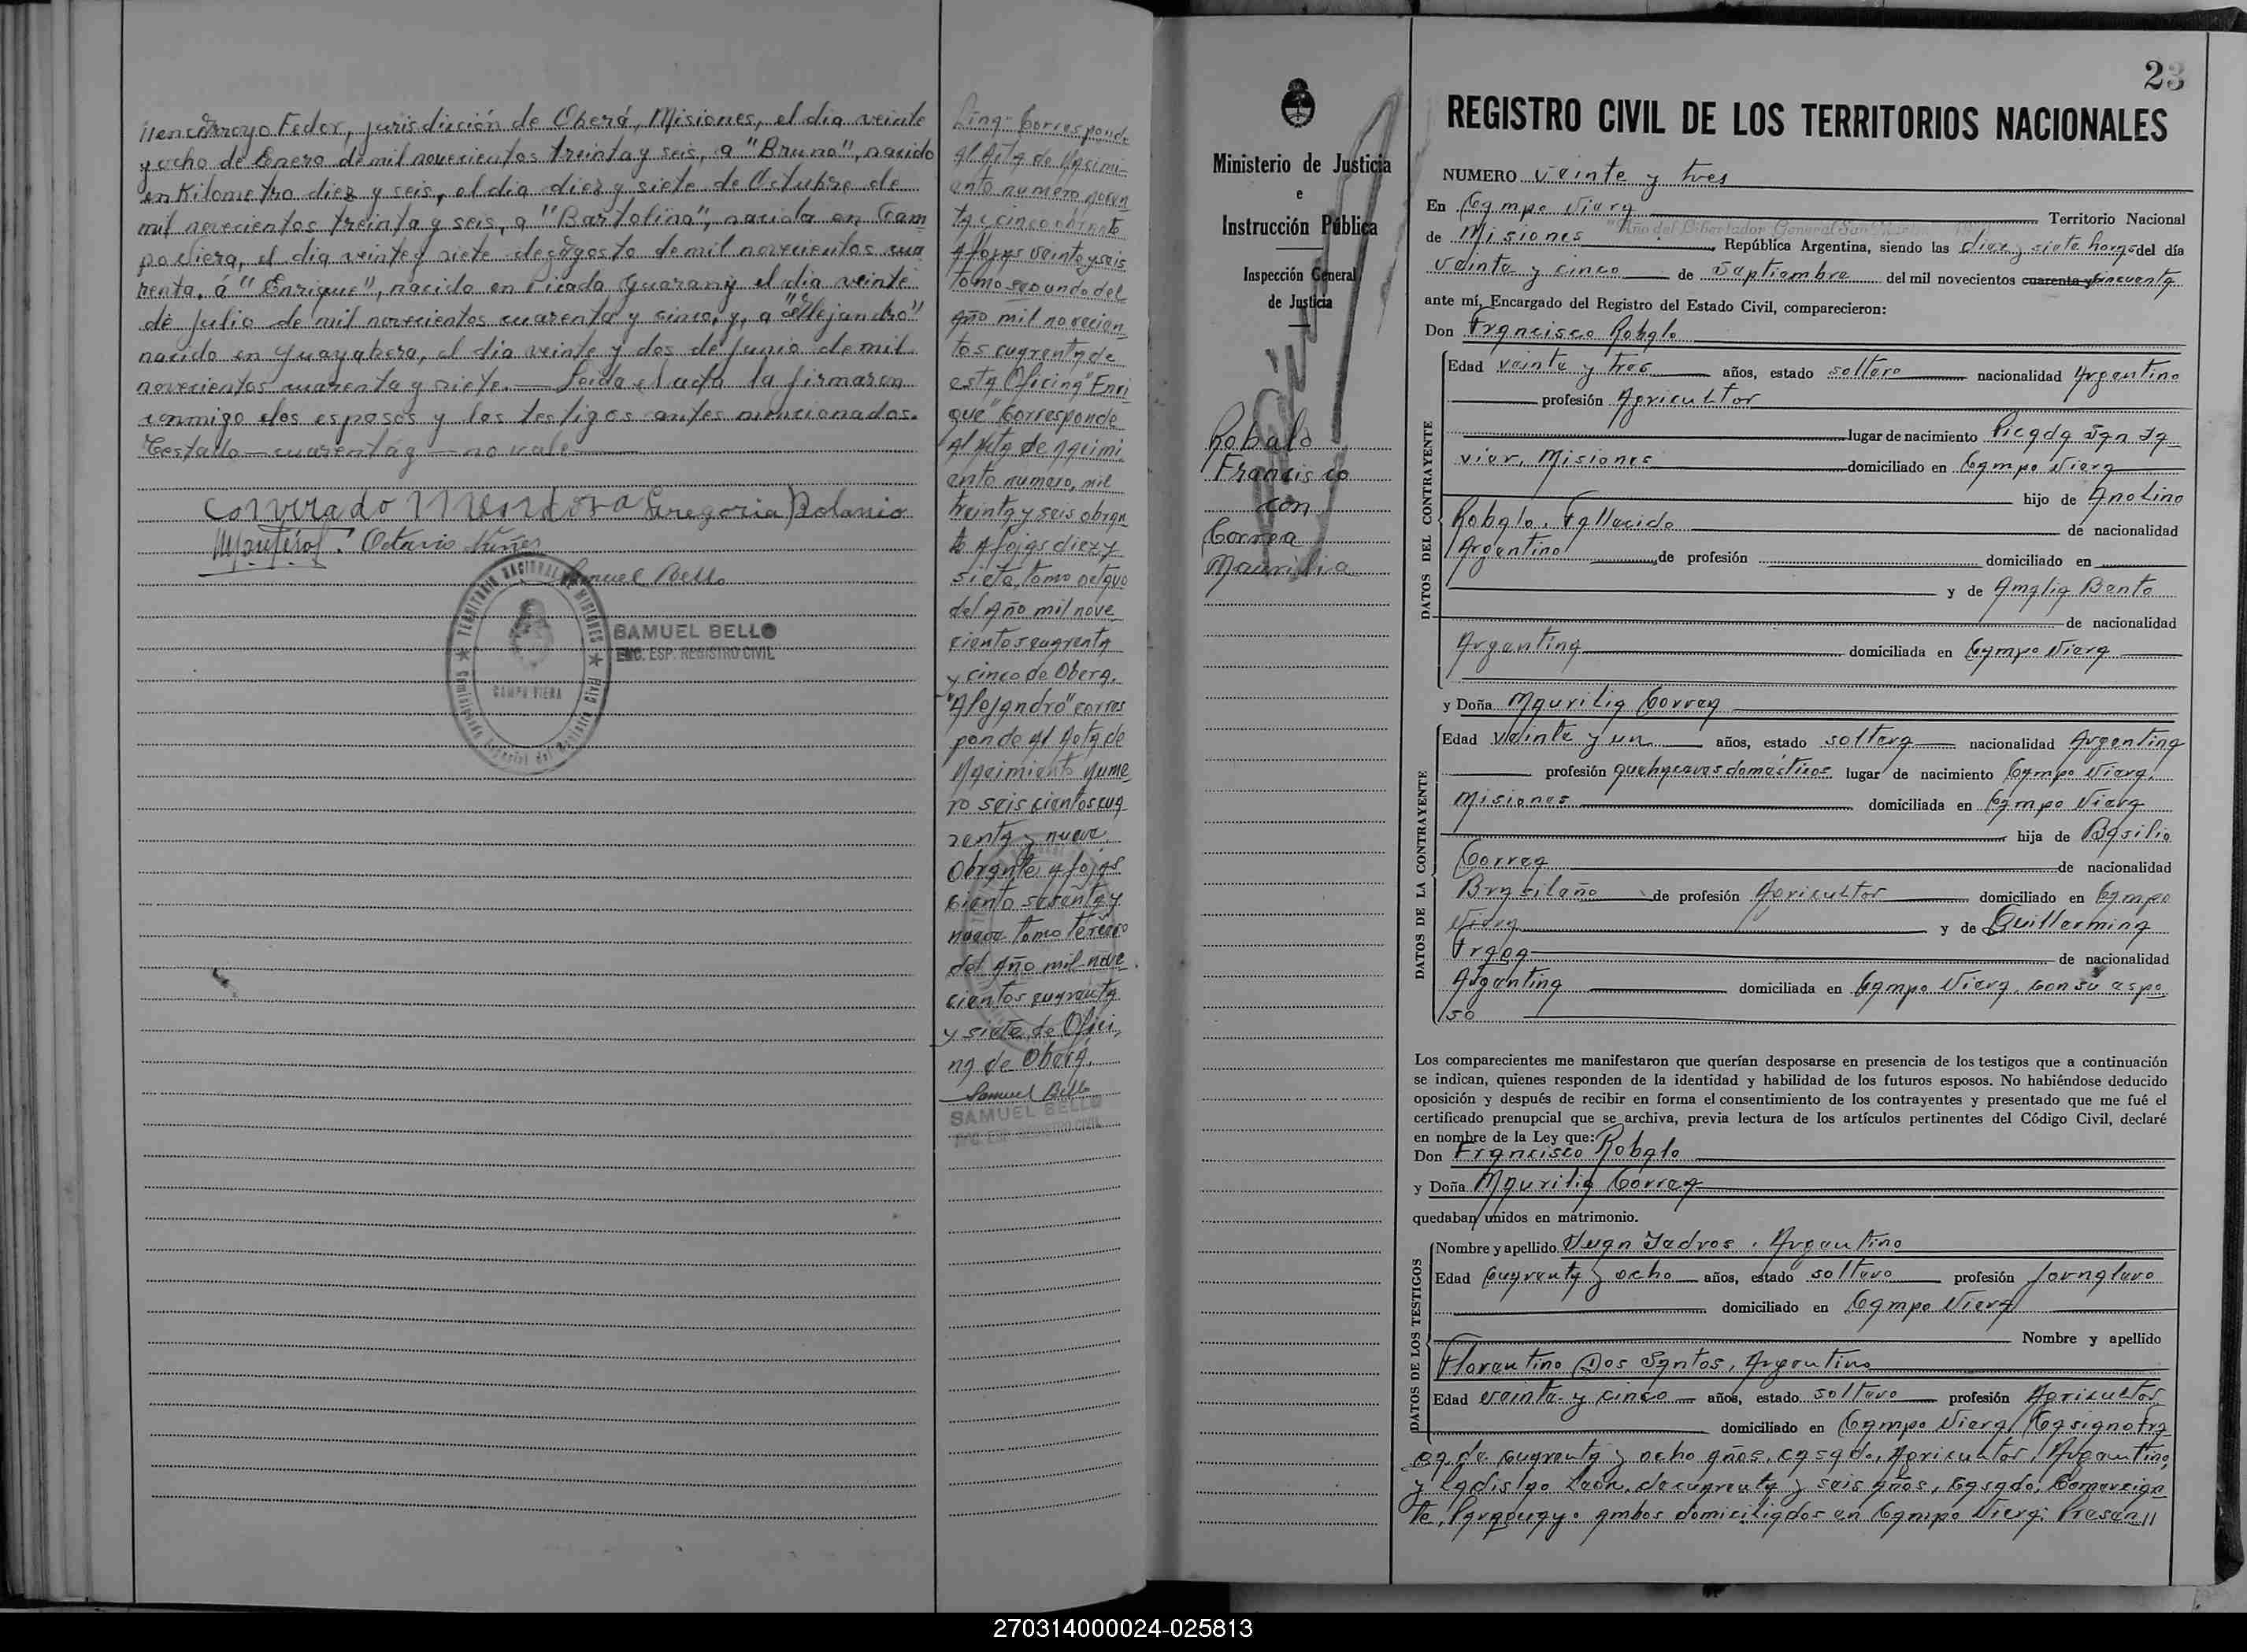 Arroyo Feder, jurisdicción de Oberá, Misiones, el dia veinte
y ocho de Enero de mil novecientos treinta y seis, a "Bruno", nacido
en Kilometro diez y seis, el dia diez y siete de Octubre de
mil novecientos treinta y seis, a "Bartolina", nacida en Cam
po Viera, el dia veinte y siete de Agosto de mil novecientos cua
renta, á "Enrique", nacido en Picada Guarany el dia veinte
de Julio de mil novecientos cuarenta y cinco, y, a "Alejandro"
nacido en Guayabera, el dia veinte y dos de Junio de mil
novecientos cuarenta y siete.— Leida el acta la firmaron
conmigo los esposos y los testigos antes mencionados.
Testado—cuarenta y—no vale—
Gregoria Polanio
Octavio Nuñez
Samuel Bello
TERRITORIO NACIONAL DE MISIONES
CAMPO VIERA
SAMUEL BELLO
ENC. ESP. REGISTRO CIVIL
Corresponde
Al Acta de Nacimi-
ento numero noven
ta y cinco obrante
A fojas veinte y seis
tomo segundo del
Año mil novecien
tos cuarenta de
esta Oficina "Enri
que" Corresponde
Al Acta de nacimi
ento numero, mil
treinta y seis obran
te A fojas diez y
siete, tomo octavo
del Año mil nove
cientos cuarenta
y cinco de Obera.
"Alejandro" corres
ponde Al Acta de
Nacimiento nume
ro seis cientos cua
renta y nueve
Obrante a fojas
ciento setenta y
nueve tomo tercero
del Año mil nove
cientos cuarenta
y siete de Ofici
na de Oberá.
Samuel Bello
SAMUEL BELLO
ENC. ESP. REGISTRO CIVIL
Ministerio de Justicia
e
Instrucción Pública
Inspección General
de Justicia
Robalo
Francisco
con
Correa
Maurilia
23
REGISTRO CIVIL DE LOS TERRITORIOS NACIONALES
NUMERO veinte y tres
En Campo Viera Territorio Nacional
"Año del Libertador General San Martín
de Misiones República Argentina, siendo las diez y siete horas del día
veinte y cinco de Septiembre del mil novecientos cuarenta y cincuenta
ante mí, Encargado del Registro del Estado Civil, comparecieron:
Don Francisco Robalo
DATOS DEL CONTRAYENTE
Edad veinte y tres años, estado soltero nacionalidad Argentino
profesión Agricultor
lugar de nacimiento Picada San Ja-
vier, Misiones domiciliado en Campo Viera
hijo de Anolino
Robalo, Fallecido de nacionalidad
Argentino de profesión domiciliado en
y de Amalia Bento
de nacionalidad
Argentina domiciliada en Campo Viera
y Doña Maurilia Correa
DATOS DE LA CONTRAYENTE
Edad veinte y un años, estado soltera nacionalidad Argentina
profesión quehaceres domésticos lugar de nacimiento Campo Viera,
Misiones domiciliada en Campo Viera
hija de Basilio
Correa de nacionalidad
Brasilaño de profesión Agricultor domiciliado en Campo
Viera y de Guillermina
Fraga de nacionalidad
Argentina domiciliada en Campo Viera, con su espo
so
Los comparecientes me manifestaron que querían desposarse en presencia de los testigos que a continuación
se indican, quienes responden de la identidad y habilidad de los futuros esposos. No habiéndose deducido
oposición y después de recibir en forma el consentimiento de los contrayentes y presentado que me fué el
certificado prenupcial que se archiva, previa lectura de los artículos pertinentes del Código Civil, declaré
en nombre de la Ley que:
Don Francisco Robalo
y Doña Maurilia Correa
quedaban unidos en matrimonio.
DATOS DE LOS TESTIGOS
Nombre y apellido Juan Argentino
Edad Cuarenta y ocho años, estado soltero profesión Jornalero
domiciliado en Campo Viera
Nombre y apellido
Florentino Dos Santos, Argentino
Edad veinte y cinco años, estado soltero profesión Agricultor
domiciliado en Campo Viera,
de cuarenta y ocho años, casado, Agricultor, Argentino,
y Ladislao León, de cuarenta y seis años, Casado, Comercian
te, Paraguayo. Ambos domiciliados en Campo Viera. Presen//
270314000024-025813